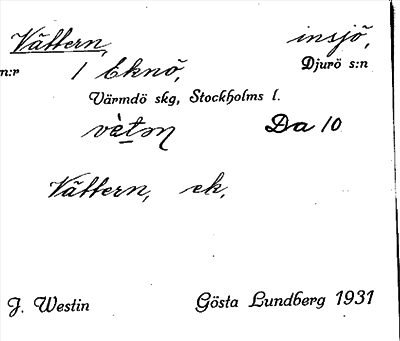 Vättern, insjö,
n:r 1 Eknö, Djurö s:n
Värmdö skg, Stockholms l.
vètәṇ Da 10
Vättern, ek.
J. Westin Gösta Lundberg 1931